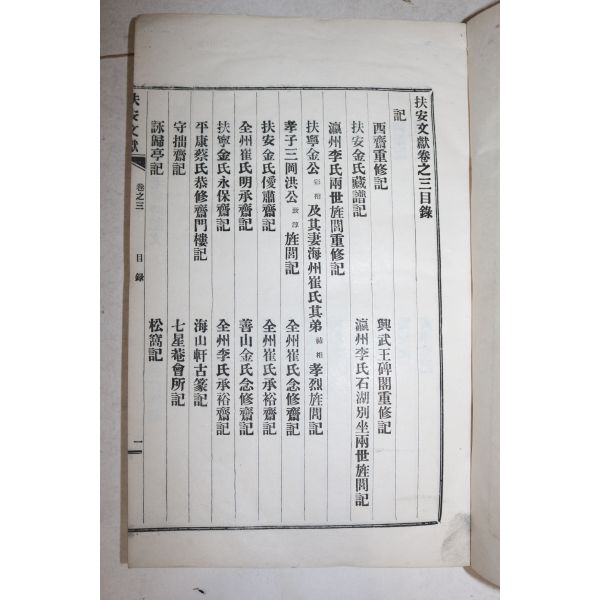 扶安文獻卷之三目錄
記
西齋重修記 興武王碑閣重修記
扶安金氏藏譜記 瀛州李氏石湖別坐兩世旌閭記
瀛州李氏兩世旌閭重修記
扶寧金公 及其妻海州崔氏其弟 孝烈旌閭記
孝子三岡洪公 旌閭記 全州崔氏念修齋記
扶安金氏僾肅齋記 全州崔氏承裕齋記
全州崔氏明承齋記 善山金氏念修齋記
扶寧金氏永保齋記 全州李氏承裕齋記
平康蔡氏恭修齋門樓記 海山軒古篆記
守拙齋記 七星菴會所記
詠歸亭記 松窩記
扶安文獻 卷之三 目錄 一